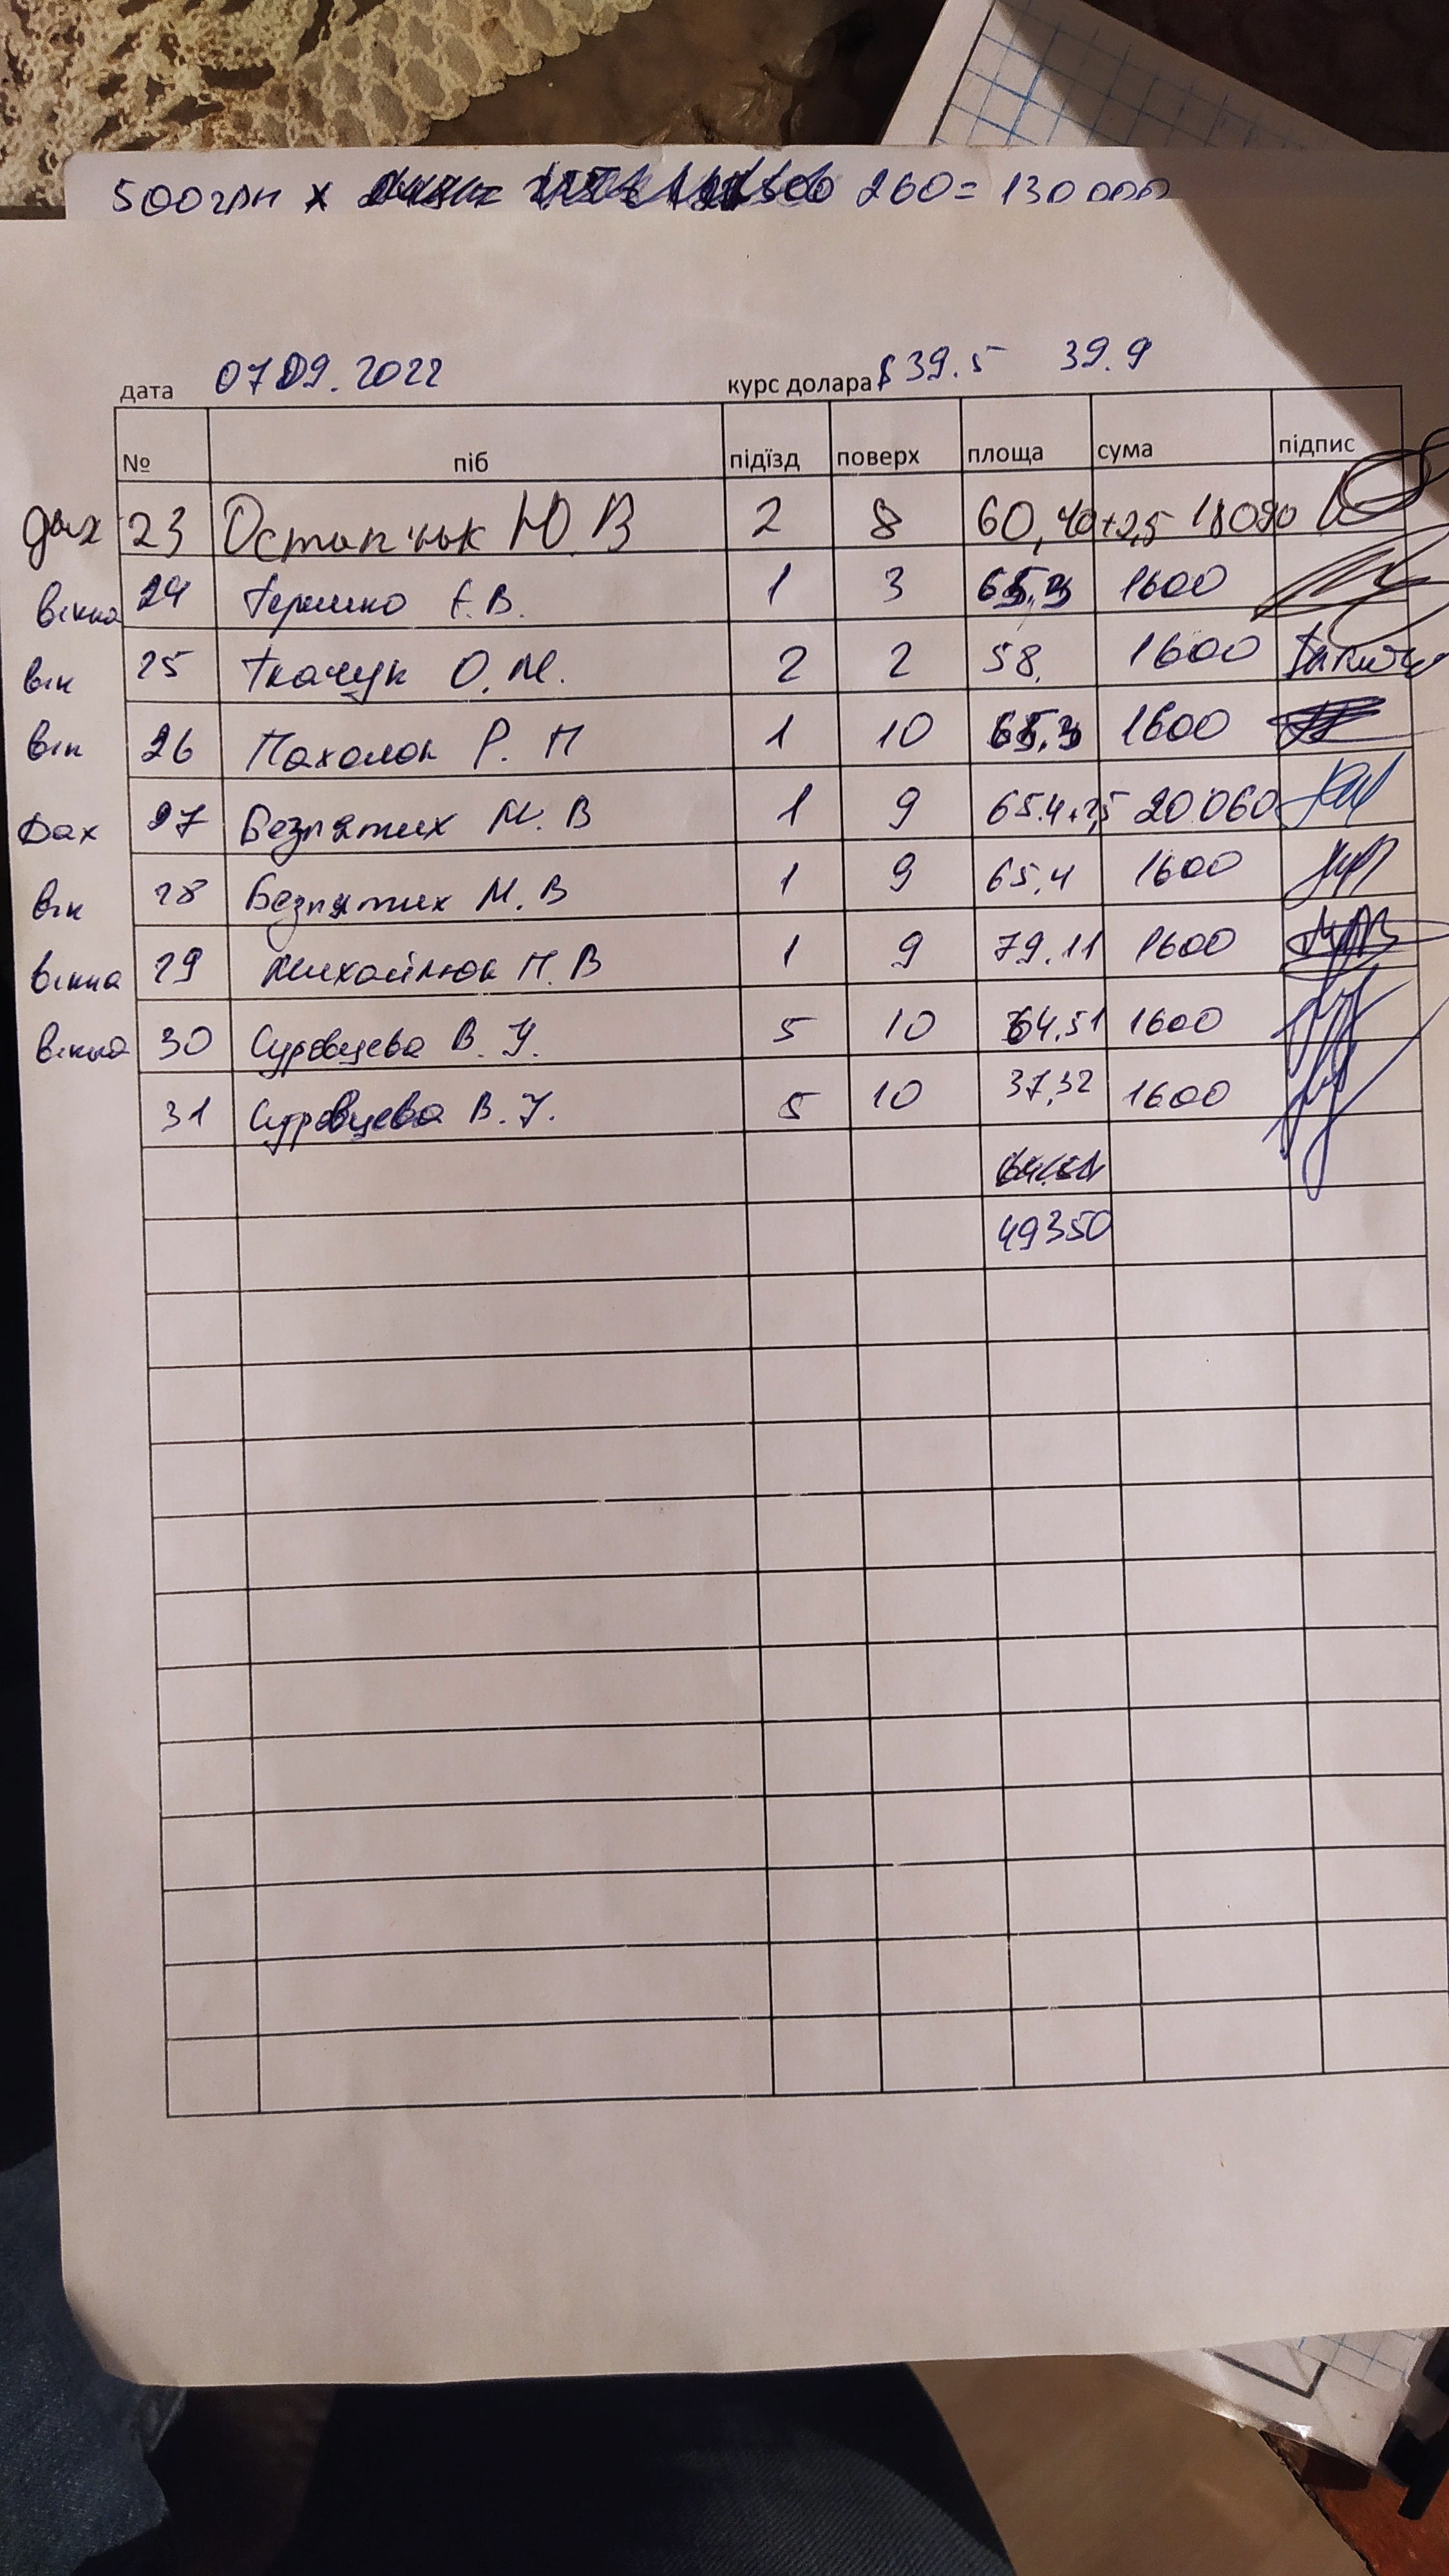 500гли х 260 = 130 000
дата 07.09.2022 курс долара 39.5 39.9
№ піб підїзд поверх площа сума підпис
дах 23 Остапчук Ю.В 2 8 60,40+2,5
вікна 24 Є.В. 1 3 1600
вік 25 Ткачук О.М. 2 2 58 1600
вік 26 Пахолок Р. Н 1 10 1600
Дах 27 Безпятих М. В 1 9 65.4+,5 20060
вік 28 Безпятих М. В 1 9 65.4 1600
вікна 29 Миколюк Н. В 1 9 79.11 1600
вікна 30 Суровцева В. У. 5 10 64,51 1600
31 Суровцева В. У. 5 10 37,32 1600
49350